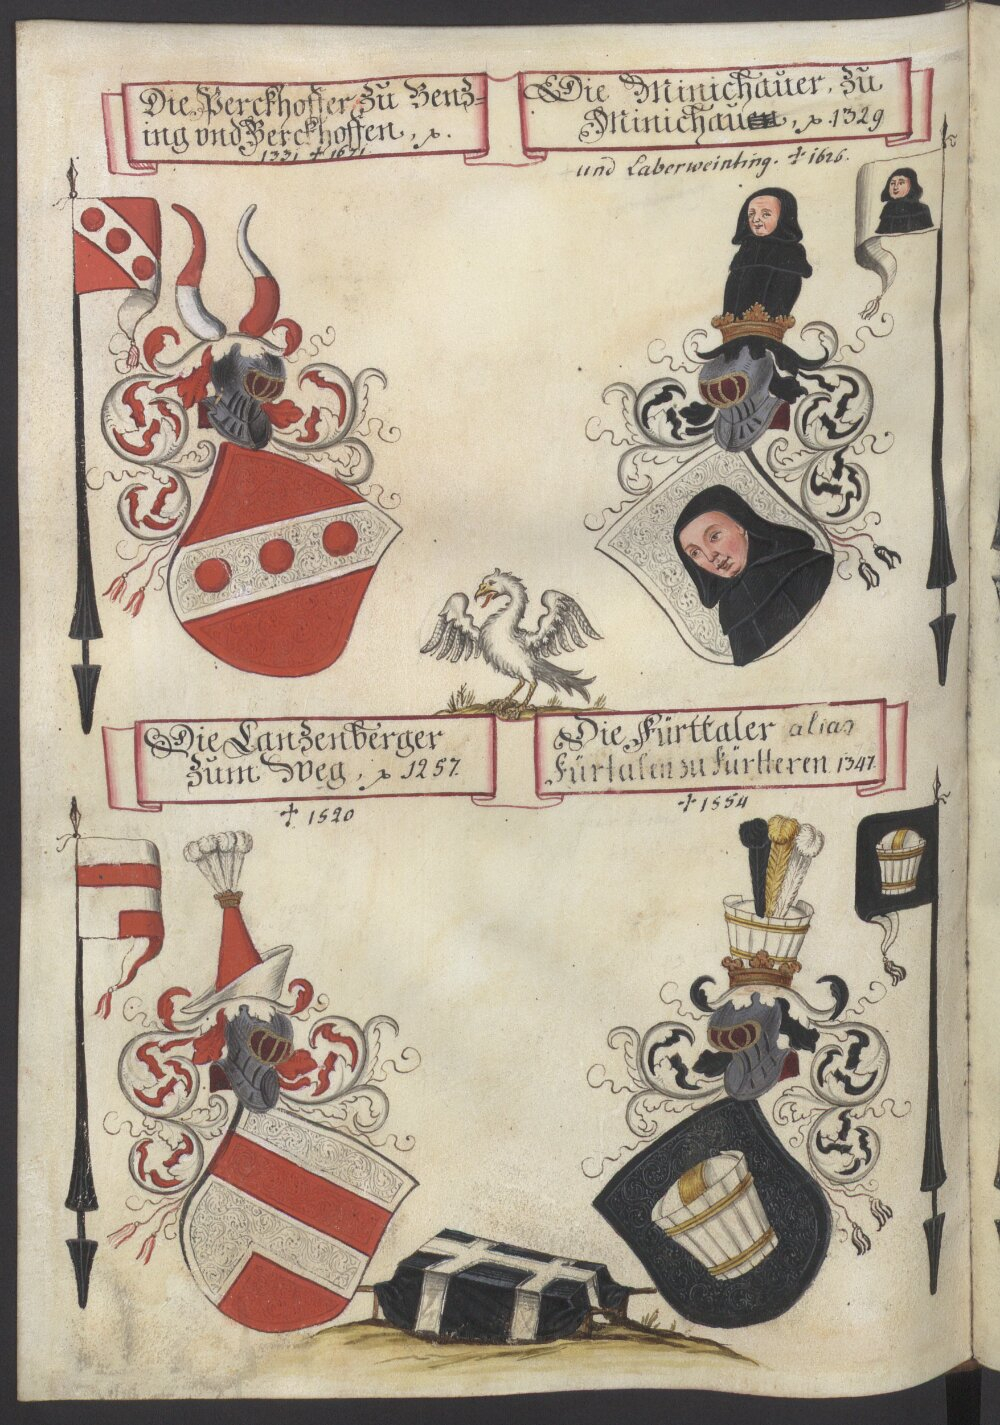 Die Perckhoffer, zu Benz-
ing vnd Berckhoffen, p.
1331 ☩ 1671.
Die Minichauer, zu
Minichauen, p. 1329
und Laberweinting. ☩ 1626.
Die Lanzenberger
zum Sweg, p 1257.
☩ 1520
Die Fürttaler alias
Fürtalen zu Fürtteren 1347.
☩ 1554